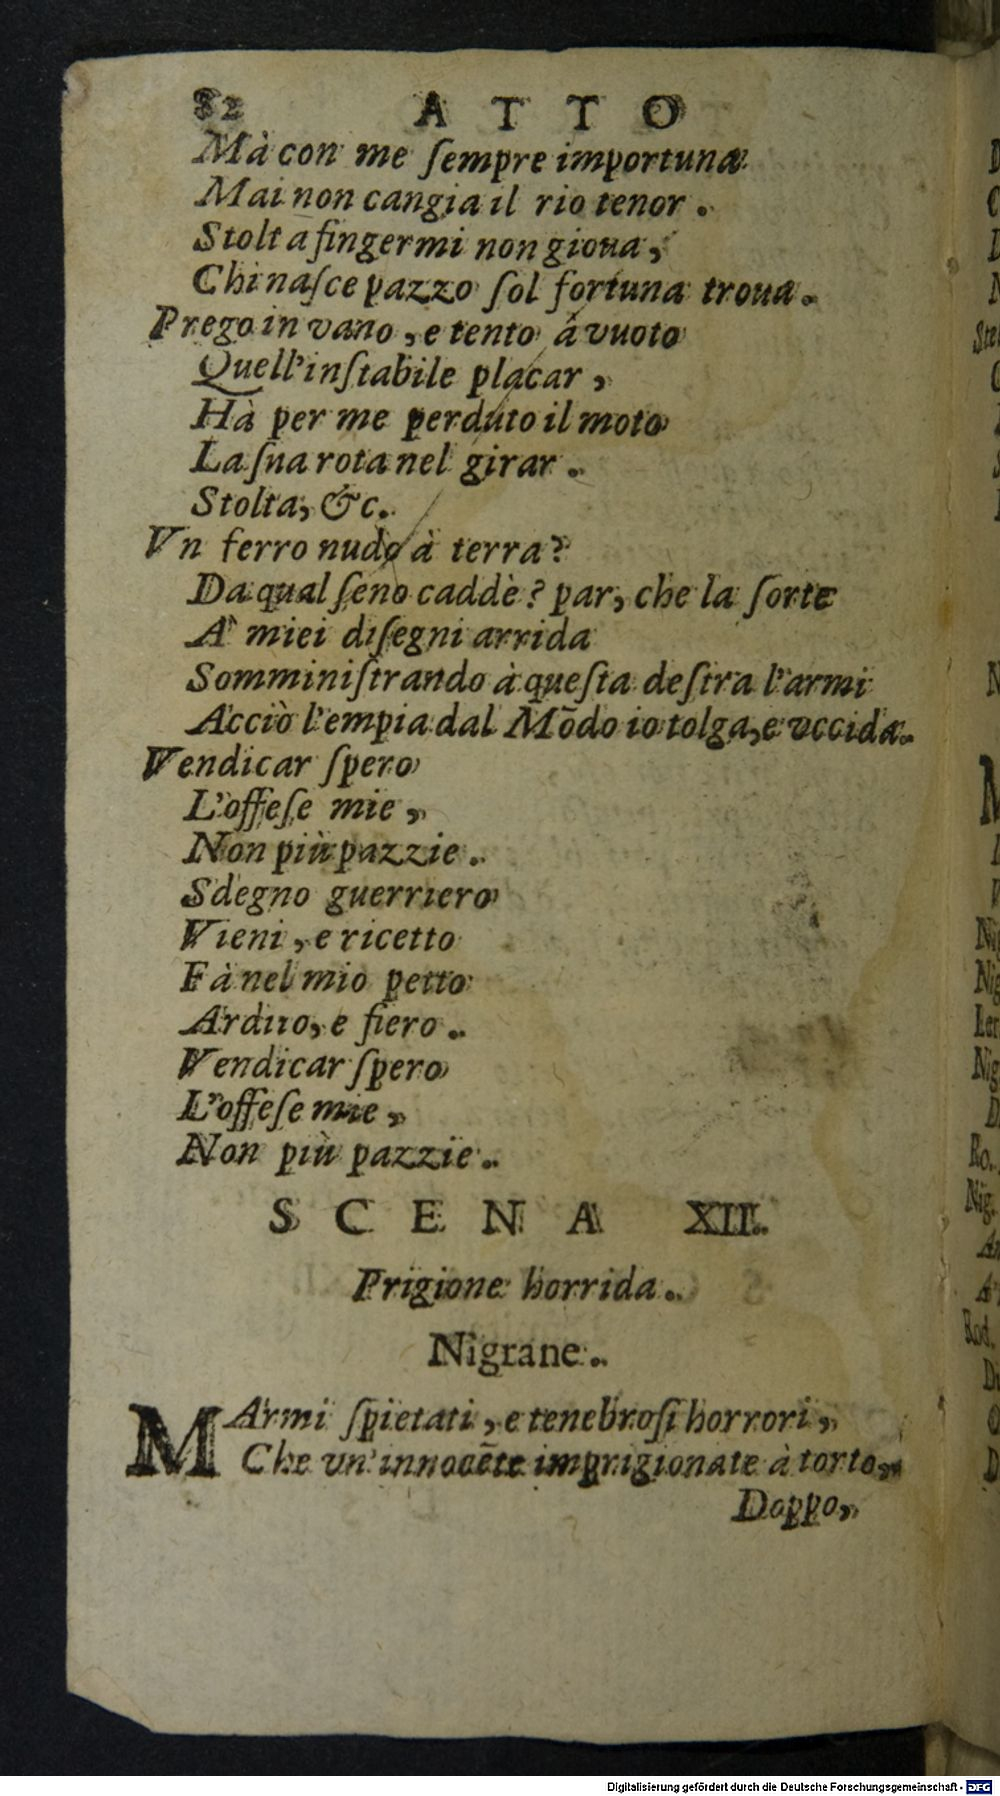 82 ATTO
Mà con me ſempre importuna
Mai non cangia il rio tenor.
Stolta fingermi non gioua,
Chi naſce pazzo ſol fortuna troua.
Prego in vano, e tento à vuoto
Quell'inſtabile placar,
Hà per me perduto il moto
La ſua rota nel girar.
Stolta, &c.
Vn ferro nudo à terra?
Da qual ſeno caddè? par, che la ſorte
A' miei diſegni arrida
Somminiſtrando à queſta deſtra l'armi
Acciò l'empia dal Mōdo io tolga, e vccida.
Vendicar ſpero
L'offeſe mie,
Non più pazzie.
Sdegno guerriero
Vieni, e ricetto
Fà nel mio petto
Arduo, e fiero.
Vendicar ſpero
L'offeſe mie,
Non più pazzie.
SCENA XII.
Prigione horrida.
Nigrane.
MArmi ſpietati, e tenebroſi horrori,
Che vn'innocēte imprigionate à torto,
Doppo,
Digitalisierung gefördert durch die Deutsche Forschungsgemeinschaft - DFG